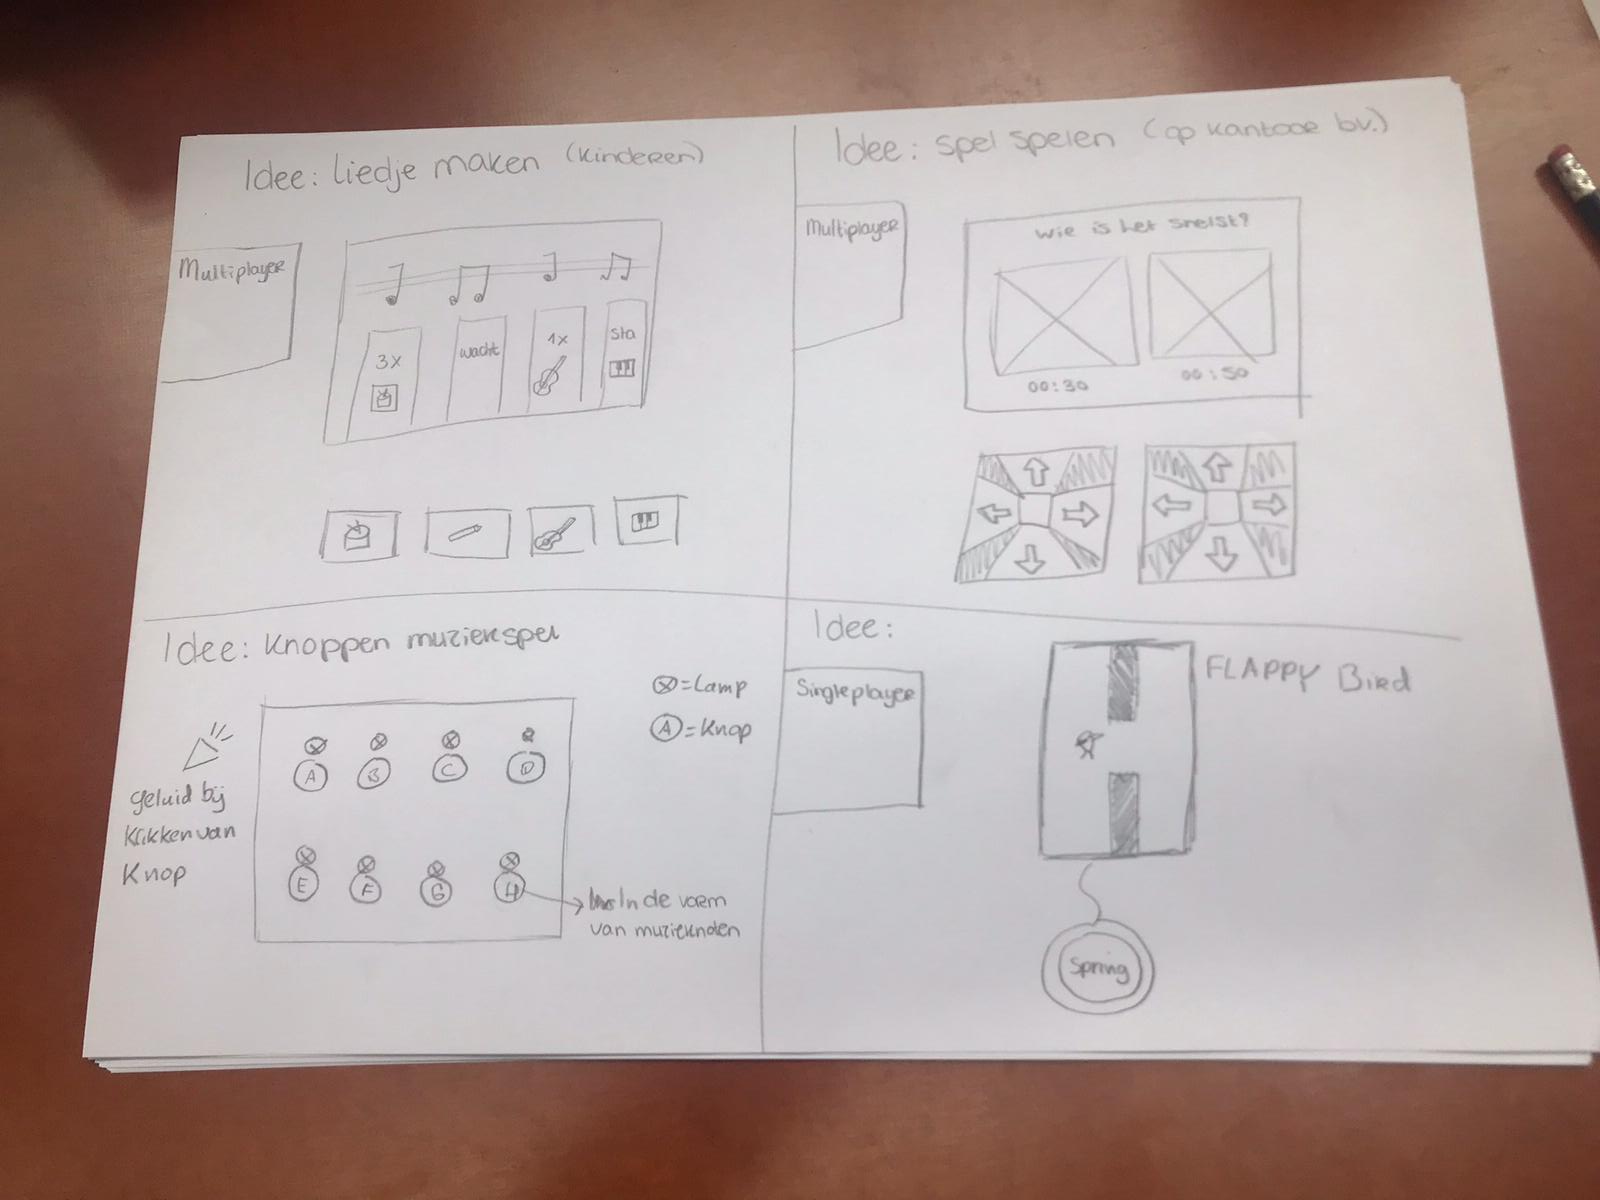 Idee: Liedje maken (kinderen)
Multiplayer
3x
wacht
1x
sta
Idee: spel spelen (op kantoor bv.)
Multiplayer
wie is het snelst?
00:30
00:50
Idee: Knoppen muziekspel
= Lamp
A = Knop
geluid bij
klikken van
Knop
A B C D
E F G H
In de vorm
van muzieknoten
Idee:
Singleplayer
FLAPPY Bird
Spring